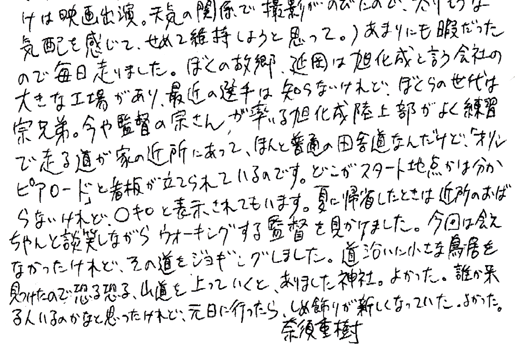 けは映画出演。天気の関係で撮影がのびたので、太りそうな
気配を感じて、せめて維持しようと思って。）あまりにも暇だった
ので毎日走りました。ぼくの故郷、延岡は旭化成と言う会社の
大きな工場があり、最近の選手は知らないけれど、ぼくらの世代は
宗兄弟。今や監督の宗さんが率いる旭化成陸上部がよく練習
で走る道が家の近所にあって、ほんと普通の田舎道なんだけど、「オリン
ピアロード」と看板が立てられているのです。どこがスタート地点かは分か
らないけれど、○キロと表示されてもいます。夏に帰省したときは近所のおば
ちゃんと談笑しながらウォーキングする監督を見かけました。今回は会え
なかったけれど、その道をジョギングしました。道沿いに小さな鳥居を
見つけたので恐る恐る、山道を上っていくと、ありました神社。よかった。誰か来
る人いるのかなと思ったけれど、元日に行ったら、しめ飾りが新しくなっていた。よかった。
奈須重樹